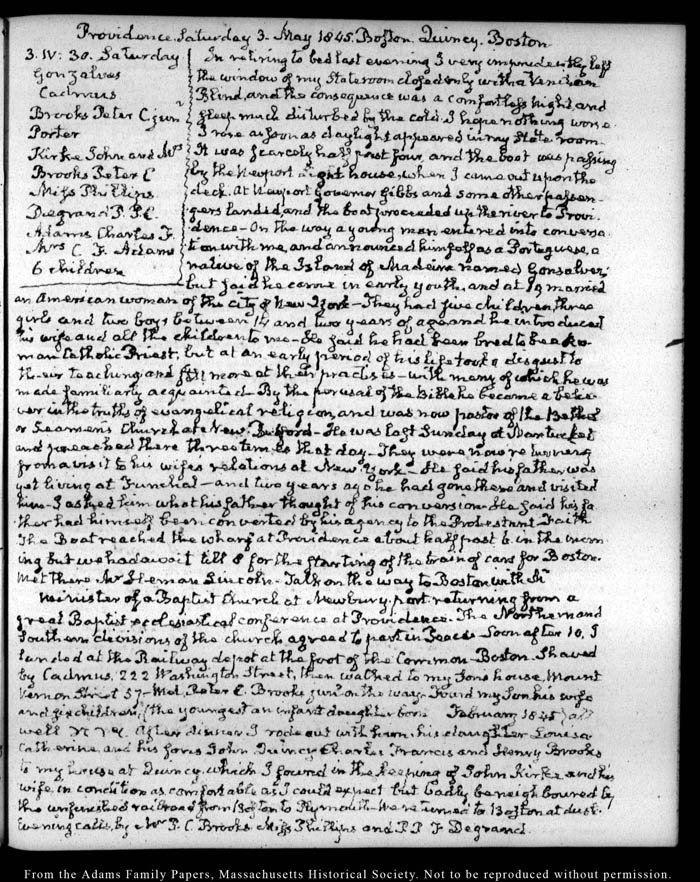 Providence. Saturday 3. May 1845. Boston. Quincy. Boston
3. IV: 30. Saturday
Gonzalves
Cadmus
Brooks Peter C. jun<sup>r</sup>
Porter
Kirke John and Mrs
Brooks Peter C
Miss Phillips
Degrand P. P. F.
Adams Charles F.
Mrs C. F. Adams
6 children
In retiring to bed last evening I very imprudently left
the window of my Stateroom closed only with a Venitian
Blind, and the consequence was a comfortless night and
sleep much disturbed by the cold. I hope nothing worse.
I rose as soon as daylight appeared in my State room.
It was scarcely half past four, and the boat was passing
by the Newport Light house, when I came out upon the
deck. At Newport Governor Gibbs and some other passen-
gers landed, and the boat proceeded up the river to Provi-
dence— On the way a young man entered into conversa-
tion with me, and announced himself as a Portuguese, a
native of the Island of Madeira named Gonsalves;
but said he came in early youth, and at 19 married
an American woman of the city of New-York— They had five children, three
girls and two boys between 14 and two years of age and he introduced
his wife and all the children to me— He said he had been bred to be a Ro-
man Catholic Priest, but at an early period of his life took a disgust to
their teaching and still more at their practises— with many of which he was
made familiarly acquainted— By the perusal of the Bible he became a belie-
ver in the truths of evangelical religion, and was now pastor of the Bethel
or Seamen's Church at New-Bedford— He was last Sunday at Nantucket
and preached there three times that day— They were now returning
from a visit to his wife's relations at New-York— He said his father was
yet living at Funchal— and two years ago he had gone there and visited
him— I asked him what his father thought of his conversion— He said his fa-
ther had himself been converted by his agency to the Protestant Faith
The Boat reached the wharf at Providence about half past 6 in the morn-
ing but we had await till 8 for the starting of the train of cars for Boston.
Met there Mr Heman Lincoln— Talk on the way to Boston with Mr
Minister of a Baptist Church at Newbury-port returning from a
great Baptist ecclesiastical conference at Providence. The Northern and
Southern divisions of the church agreed to part in Peace— Soon after 10, I
landed at the Railway depot at the foot of the Common— Boston. Shaved
by Cadmus, 222 Washington Street, then walked to my Sons house, Mount
Vernon Street 57— Met Peter C. Brooks junr on the way— Found my Son his wife
and six children, (the youngest an infant daughter born February 1845) all
well After dinner I rode out with him, his daughter Louisa
Catherine, and his sons John Quincy, Charles Francis and Henry Brooks
to my house at Quincy, which I found in the keeping of John Kirke and his
wife, in condition as comfortable as I could expect but badly beneighboured by
the unfinished railroad from Boston to Plymouth— We returned to Boston at dusk.
Evening calls, by Mr P. C. Brooks Miss Phillips and P. P. F. Degrand.
From the Adams Family Papers, Massachusetts Historical Society. Not to be reproduced without permission.